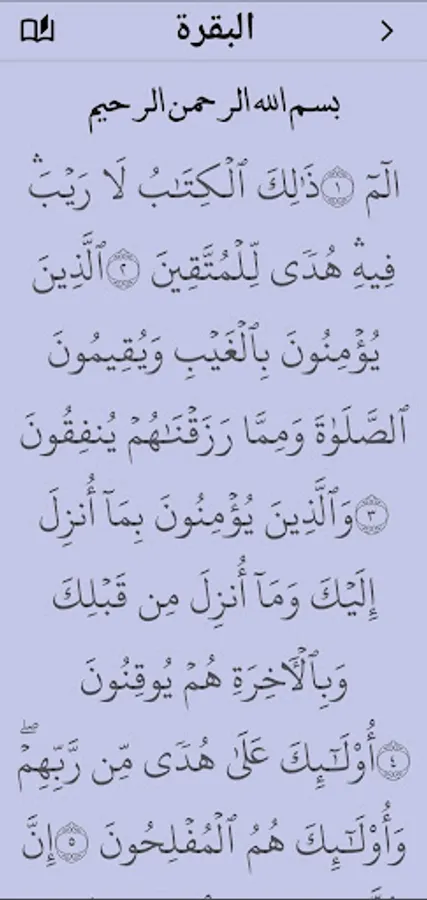 البقرة
بسم الله الرحمن الرحيم
الٓمٓ ١ ذَٰلِكَ ٱلْكِتَٰبُ لَا رَيْبَۛ
فِيهِۛ هُدًى لِّلْمُتَّقِينَ ٢ ٱلَّذِينَ
يُؤْمِنُونَ بِٱلْغَيْبِ وَيُقِيمُونَ
ٱلصَّلَوٰةَ وَمِمَّا رَزَقْنَٰهُمْ يُنفِقُونَ
٣ وَٱلَّذِينَ يُؤْمِنُونَ بِمَآ أُنزِلَ
إِلَيْكَ وَمَآ أُنزِلَ مِن قَبْلِكَ
وَبِٱلْءَاخِرَةِ هُمْ يُوقِنُونَ
٤ أُو۟لَٰٓئِكَ عَلَىٰ هُدًى مِّن رَّبِّهِمْۖ
وَأُو۟لَٰٓئِكَ هُمُ ٱلْمُفْلِحُونَ ٥ إِنَّ